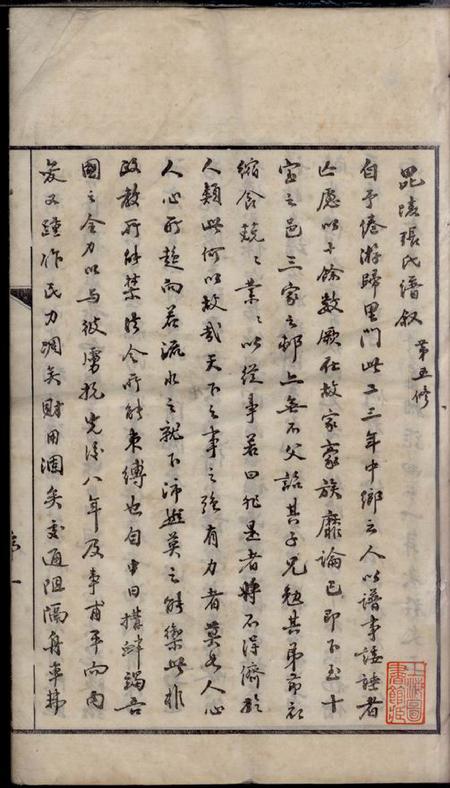 毘陵張氏譜叙 第五修
自予倦游歸里門此二三年中鄉之人以譜事諉諈者
亡慮以十餘數厥在故家豪族靡論已即下至十
室之邑三家之邨上無不父詔其子兄勉其弟節衣
縮食兢〻業〻以從事若曰非是者將不得儕於
人類此何以故哉天下之事之強有力者莫如人心
人心所趨向若流水之就下沛然莫之能禦此非
政教所能禁法令所能束縛也自中日搆衅竭吾
國之全力以与彼虜抗先後八年及事甫平而內
爰又踵作民力凋矣財用涸矣交通阻隔舟車
上海圖書館藏